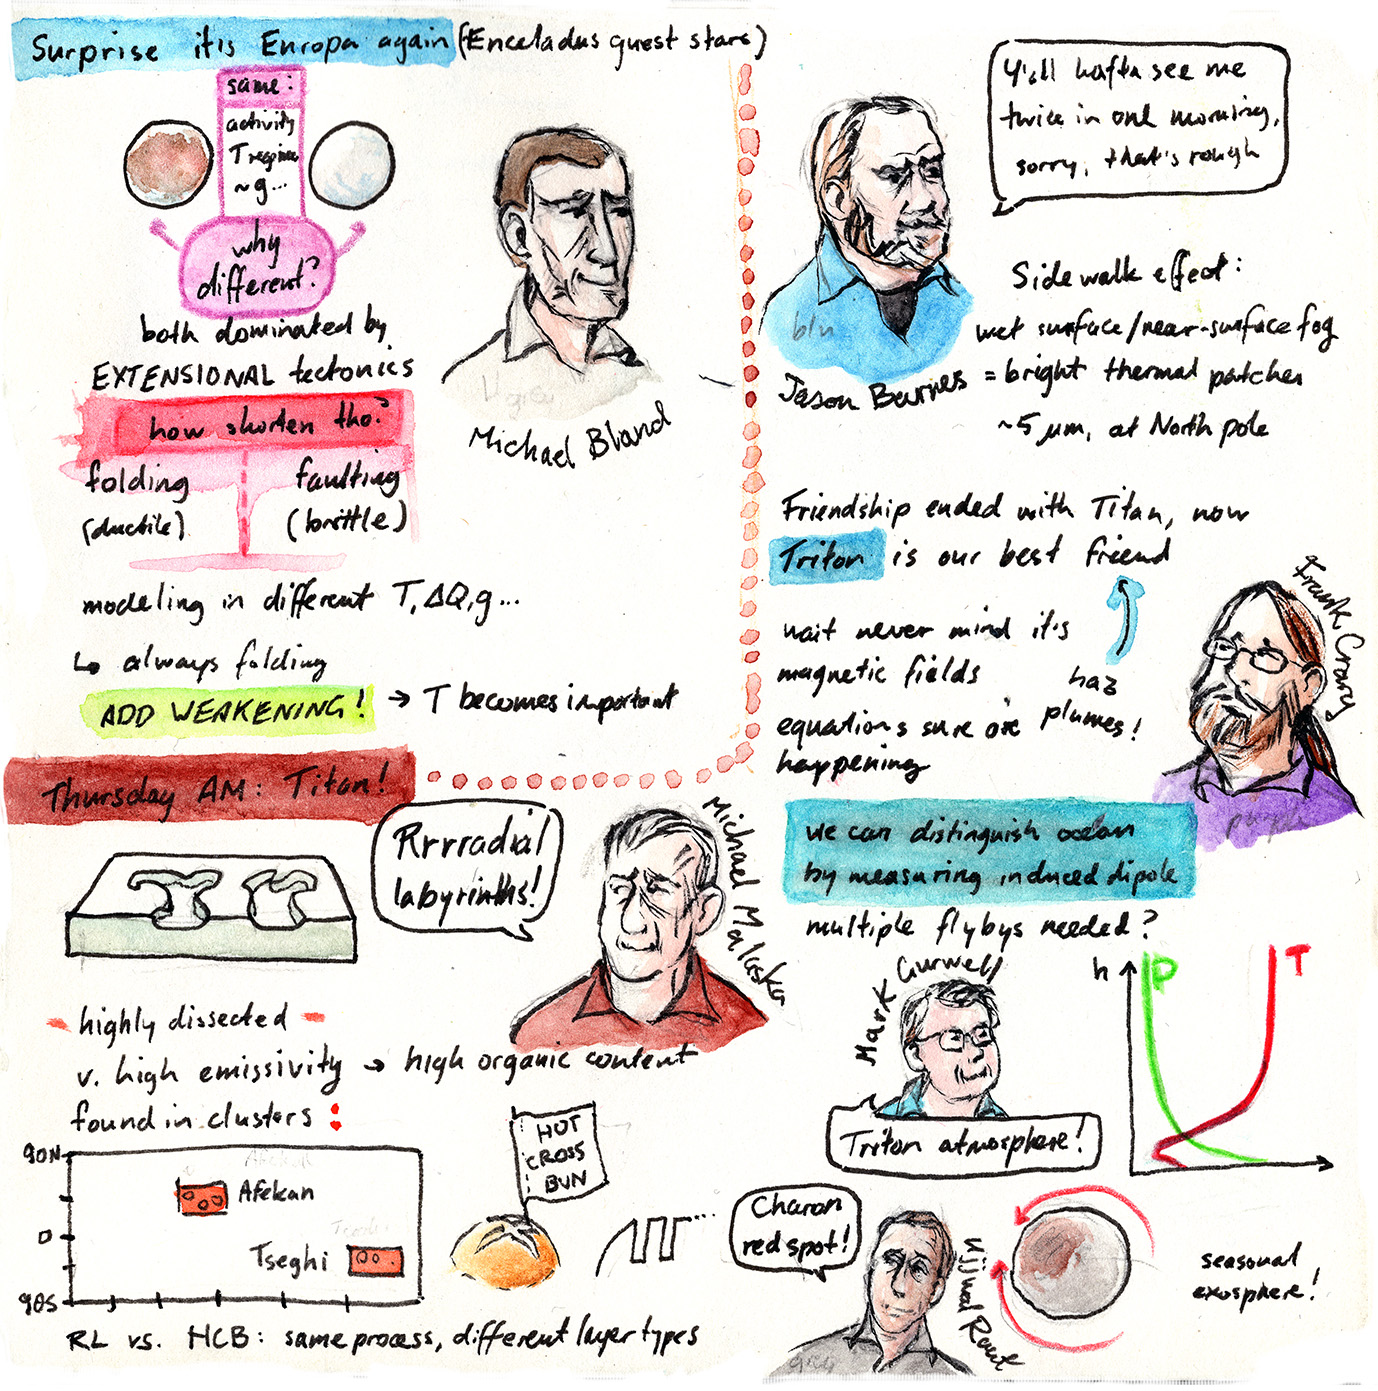 Surprise it's Europa again (Enceladus guest stars)
same:
activity
T regime
~g...
why
different?
both dominated by
EXTENSIONAL tectonics
how shorten tho?
folding
(ductile)
faulting
(brittle)
modeling in different T, ΔQ, g...
↳ always folding
ADD WEAKENING! → T becomes important
Michael Bland
Thursday AM: Titan!
Rrrradial
labyrinths!
Michael Malaska
- highly dissected -
v. high emissivity → high organic content
found in clusters:
90N
0
90S
Afekan
Tseghi
HOT
CROSS
BUN
...
RL vs. HCB: same process, different layer types
Y'all hafta see me
twice in one morning,
sorry, that's rough
Jason Barnes
Sidewalk effect:
wet surface/near-surface fog
= bright thermal patches
~5 μm, at North pole
Friendship ended with Titan, now
Triton is our best friend
haz
plumes!
wait never mind it's
magnetic fields
equations sure are
happening
Frank Crary
purple
we can distinguish ocean
by measuring induced dipole
multiple flybys needed?
Mark Gurwell
Triton atmosphere!
h
P
T
Charon
red spot!
Ujjwal Raut
seasonal
exosphere!